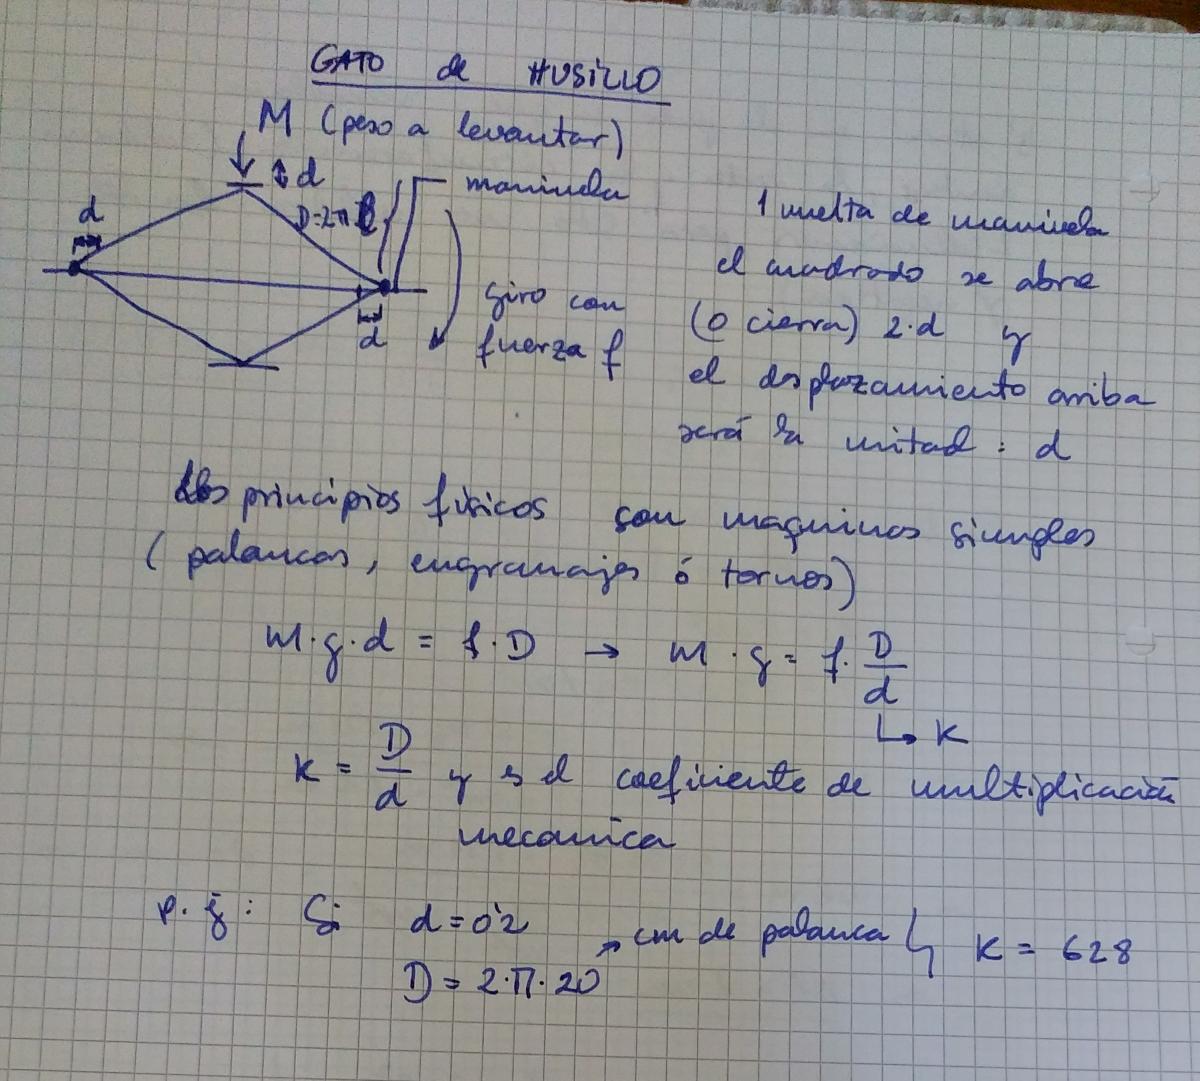 GATO de HUSILLO
M (peso a levantar)
d
d
D=2π
manivela
giro con
fuerza f
d
1 vuelta de manivela
el cuadrado se abre
(o cierra) 2·d y
el desplazamiento arriba
será la mitad: d
Los principios físicos son maquinas simples
(palancas, engranajes ó tornos)
m·g·d = f·D → m·g = f· D/d
↳ K
K = D/d y es el coeficiente de multiplicación
mecanica
p. ej: Si d=0'2
D = 2·π·20 → cm de palanca K = 628